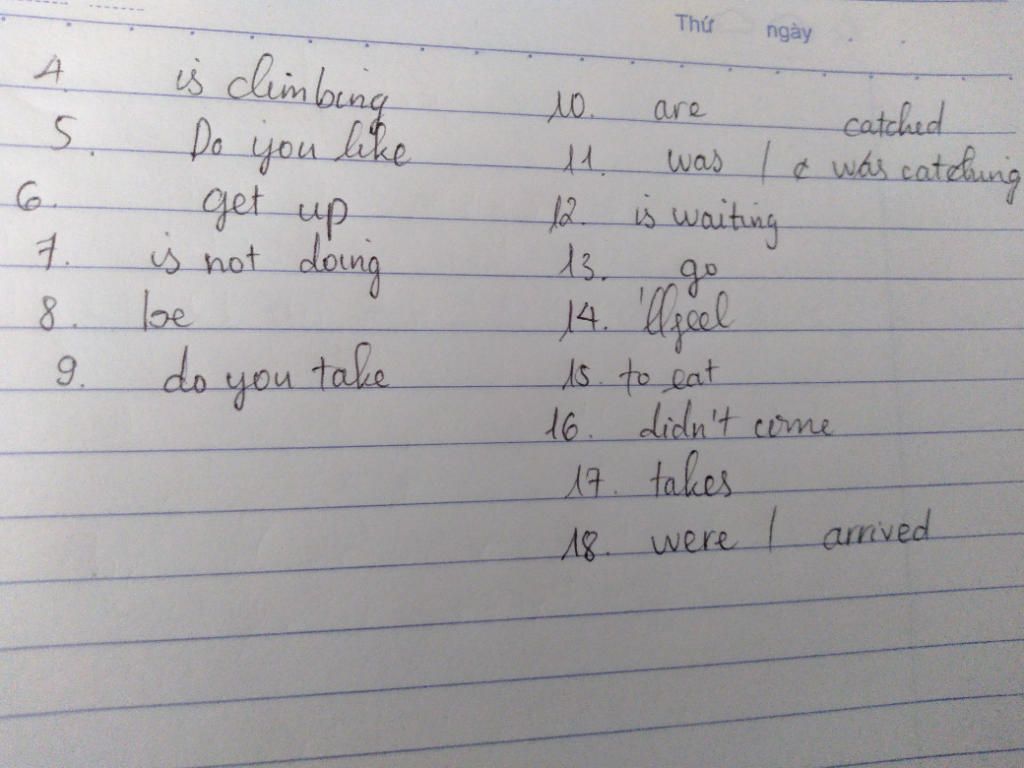 Thứ ngày
4. is climbing
5. Do you like
6. get up
7. is not doing
8. be
9. do you take
10. are
catched
11. was / ¢ was catching
12. is waiting
13. go
14. 'll feel
15. to eat
16. didn't come
17. takes
18. were / arrived